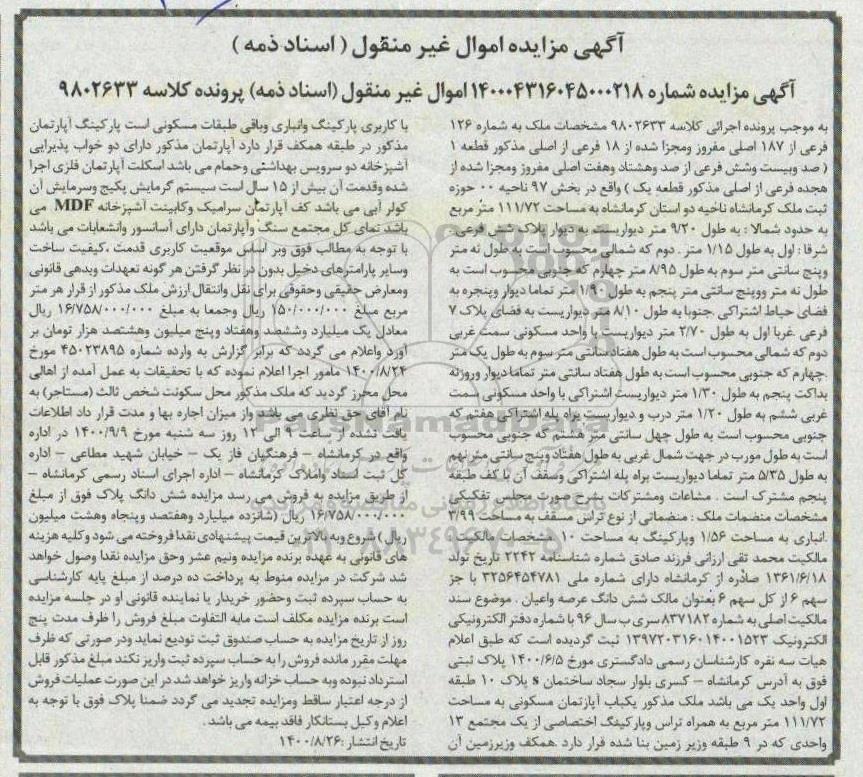 آگهی مزایده اموال غیر منقول ( اسناد ذمه )
آگهی مزایده شماره ۱۴۰۰۰۴۳۱۶۰۴۵۰۰۰۲۱۸ اموال غیر منقول (اسناد ذمه) پرونده کلاسه ۹۸۰۲۶۳۳
به موجب پرونده اجرائی کلاسه ۹۸۰۲۶۳۳ مشخصات ملک به شماره ۱۲۶
فرعی از ۱۸۷ اصلی مفروز ومجزا شده از ۱۸ فرعی از اصلی مذکور قطعه ۱
( صد وبیست وشش فرعی از صد وهشتاد وهفت اصلی مفروز ومجزا شده از
هجده فرعی از اصلی مذکور قطعه یک ) واقع در بخش ۹۷ ناحیه ۰۰ حوزه
ثبت ملک کرمانشاه ناحیه دو استان کرمانشاه به مساحت ۱۱۱/۷۲ متر مربع
به حدود شمالا : به طول ۹/۲۰ متر دیواریست به دیوار پلاک شش فرعی .
شرقا : اول به طول ۱/۱۵ متر . دوم که شمالی محسوب است به طول نه متر
وپنج سانتی متر سوم به طول ۸/۹۵ متر چهارم که جنوبی محسوب است به
طول نه متر ووپنج سانتی متر پنجم به طول ۱/۹۰ متر تماما دیوار وپنجره به
فضای حیاط اشتراکی .جنوبا به طول ۸/۱۰ متر دیواریست به فضای پلاک ۷
فرعی .غربا اول به طول ۲/۷۰ متر دیواریست با واحد مسکونی سمت غربی
دوم که شمالی محسوب است به طول هفتاد سانتی متر سوم به طول یک متر
.چهارم که جنوبی محسوب است به طول هفتاد سانتی متر تماما دیوار وروزنه
بداکت پنجم به طول ۱/۳۰ متر دیواریست اشتراکی با واحد مسکونی سمت
غربی ششم به طول ۱/۲۰ متر درب و دیواریست براه پله اشتراکی هفتم که
جنوبی محسوب است به طول چهل سانتی متر هشتم که جنوبی محسوب
است به طول مورب در جهت شمال غربی به طول هفتاد وپنج سانتی متر نهم
به طول ۵/۳۵ متر تماما دیواریست براه پله اشتراکی وسقف آن با کف طبقه
پنجم مشترک است . مشاعات ومشترکات بشرح صورت مجلس تفکیکی
مشخصات منضمات ملک : منضماتی از نوع تراس مسقف به مساحت ۳/۹۹
.انباری به مساحت ۱/۵۶ وپارکینگ به مساحت ۱۰ مشخصات مالکیت :
مالکیت محمد تقی ارزانی فرزند صادق شماره شناسنامه ۲۲۴۲ تاریخ تولد
۱۳۶۱/۶/۱۸ صادره از کرمانشاه دارای شماره ملی ۳۲۵۶۴۵۴۷۸۱ با جز
سهم ۶ از کل سهم ۶ بعنوان مالک شش دانگ عرصه واعیان . موضوع سند
مالکیت اصلی به شماره ۸۳۷۱۸۲ سری ب سال ۹۶ با شماره دفتر الکترونیکی
الکترونیک ۱۳۹۷۲۰۳۱۶۰۱۴۰۰۱۵۲۳ ثبت گردیده است که طبق اعلام
هیات سه نفره کارشناسان رسمی دادگستری مورخ ۱۴۰۰/۶/۵ پلاک ثبتی
فوق به آدرس کرمانشاه – کسری بلوار سجاد ساختمان s پلاک ۱۰ طبقه
اول واحد یک می باشد ملک مذکور یکباب آپارتمان مسکونی به مساحت
۱۱۱/۷۲ متر مربع به همراه تراس وپارکینگ اختصاصی از یک مجتمع ۱۳
واحدی که در ۹ طبقه وزیر زمین بنا شده قرار دارد .همکف وزیرزمین آن
با کاربری پارکینگ وانباری وباقی طبقات مسکونی است پارکینگ آپارتمان
مذکور در طبقه همکف قرار دارد آپارتمان مذکور دارای دو خواب پذیرایی
آشپزخانه دو سرویس بهداشتی وحمام می باشد اسکلت آپارتمان فلزی اجرا
شده وقدمت آن بیش از ۱۵ سال است سیستم گرمایش پکیج وسرمایش آن
کولر آبی می باشد کف آپارتمان سرامیک وکابینت آشپزخانه MDF می
باشد نمای کل مجتمع سنگ وآپارتمان دارای آسانسور وانشعابات می باشد
با توجه به مطالب فوق وبر اساس موقعیت کاربری قدمت ،کیفیت ساخت
وسایر پارامترهای دخیل بدون در نظر گرفتن هر گونه تعهدات وبدهی قانونی
ومعارض حقیقی وحقوقی برای نقل وانتقال ارزش ملک مذکور از قرار هر متر
مربع مبلغ ۱۵۰/۰۰۰/۰۰۰ ریال وجمعا به مبلغ ۱۶/۷۵۸/۰۰۰/۰۰۰ ریال
معادل یک میلیارد وششصد وهفتاد وپنج میلیون وهشتصد هزار تومان بر
آورد واعلام می گردد که برابر گزارش به وارده شماره ۴۵۰۲۳۸۹۵ مورخ
۱۴۰۰/۸/۲۴ مامور اجرا اعلام نموده که با تحقیقات به عمل آمده از اهالی
محل محرز گردید که ملک مذکور محل سکونت شخص ثالث (مستاجر) به
نام آقای حق نظری می باشد واز میزان اجاره بها و مدت قرار داد اطلاعات
یافت نشده از ساعت ۹ الی ۱۲ روز سه شنبه مورخ ۱۴۰۰/۹/۹ در اداره
واقع در کرمانشاه – فرهنگیان فاز یک – خیابان شهید مطاعی – اداره
کل ثبت اسناد واملاک کرمانشاه – اداره اجرای اسناد رسمی کرمانشاه –
از طریق مزایده به فروش می رسد مزایده شش دانگ پلاک فوق از مبلغ
۱۶/۷۵۸/۰۰۰/۰۰۰ ریال (شانزده میلیارد وهفتصد وپنجاه وهشت میلیون
ریال ) شروع وبه بالاترین قیمت پیشنهادی نقدا فروخته می شود وکلیه هزینه
های قانونی به عهده برنده مزایده ونیم عشر وحق مزایده نقدا وصول خواهد
شد شرکت در مزایده منوط به پرداخت ده درصد از مبلغ پایه کارشناسی
به حساب سپرده ثبت وحضور خریدار یا نماینده قانونی او در جلسه مزایده
است برنده مزایده مکلف است مابه التفاوت مبلغ فروش را ظرف مدت پنج
روز از تاریخ مزایده به حساب صندوق ثبت تودیع نماید ودر صورتی که ظرف
مهلت مقرر مانده فروش را به حساب سپرده ثبت واریز نکند مبلغ مذکور قابل
استرداد نبوده وبه حساب خزانه واریز خواهد شد در این صورت عملیات فروش
از درجه اعتبار ساقط ومزایده تجدید می گردد ضمنا پلاک فوق با توجه به
اعلام وکیل بستانکار فاقد بیمه می باشد .
تاریخ انتشار :۱۴۰۰/۸/۲۶
ParsNamadData